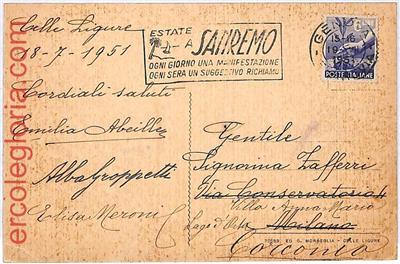 Celle Ligure
18-7-1951
Cordiali saluti
Emilia Abeille
Alba Groppetti
Elisa Meroni
ESTATE
A SANREMO
OGNI GIORNO UNA MANIFESTAZIONE
OGNI SERA UN SUGGESTIVO RICHIAMO
GENOVA
15-16
19
1951
POSTE ITALIANE
Gentile
Signorina Zafferri
Via Conservatorio
Villa Anna Maria
Milano
Lago d'Orta
ED. G. MORBEGLIA - CELLE LIGURE
ercolegloria.com